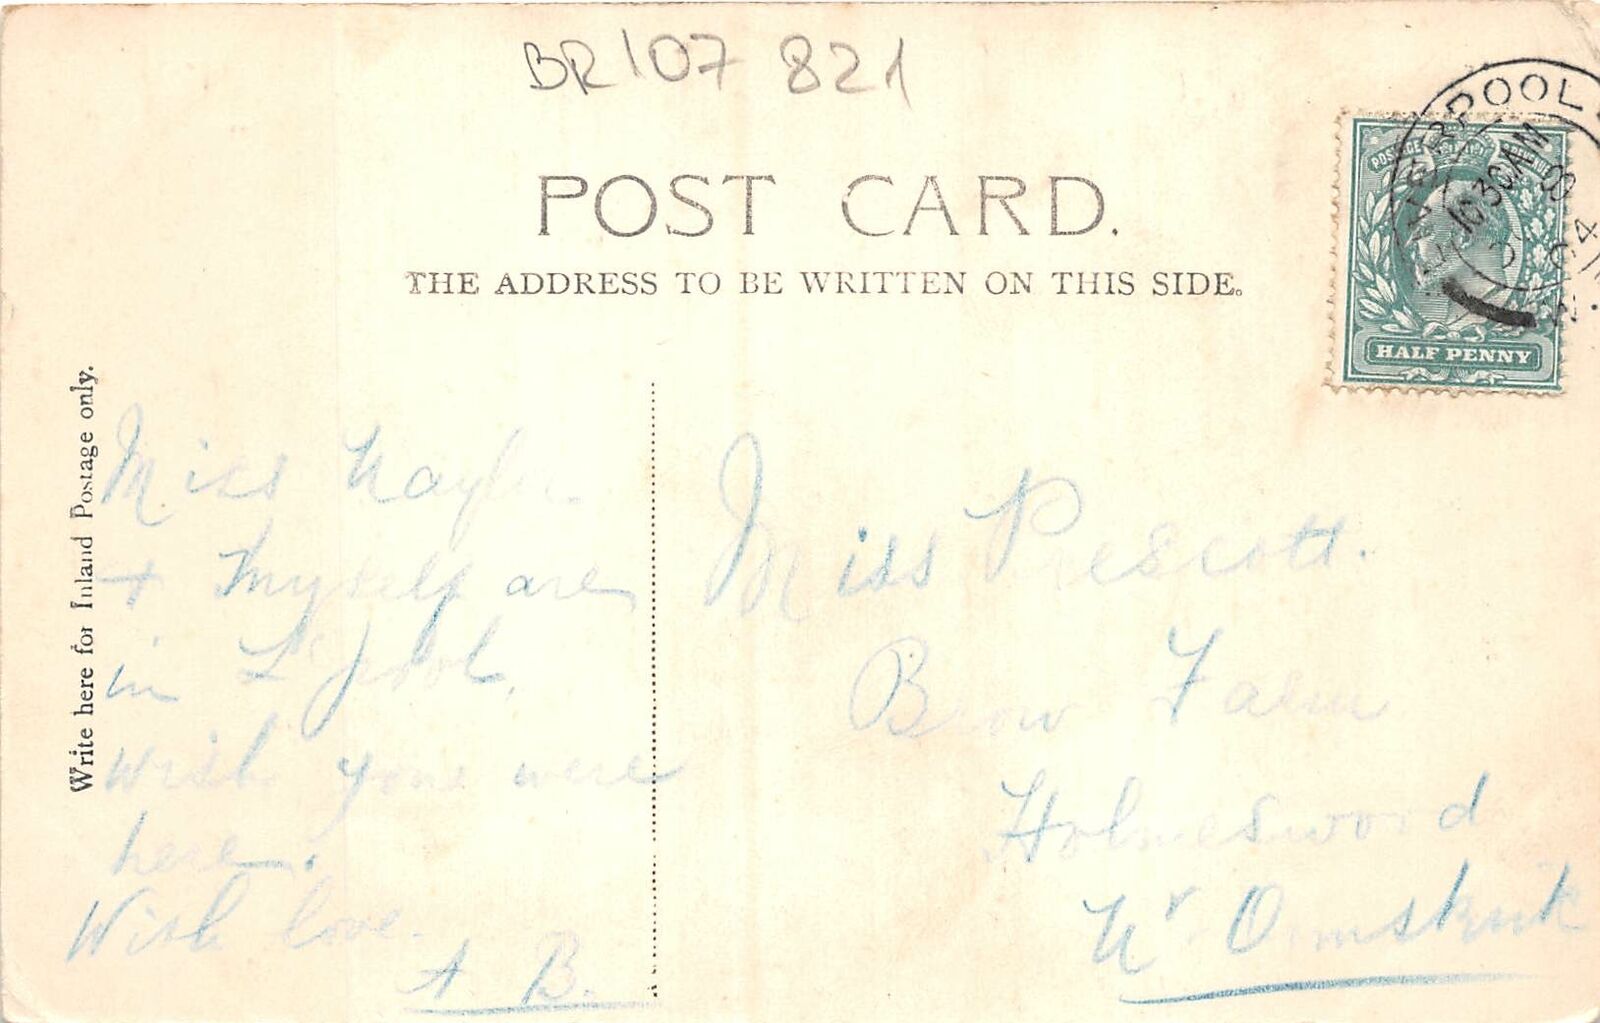 BR 107 821
POST CARD.
THE ADDRESS TO BE WRITTEN ON THIS SIDE.
LIVERPOOL
10 30 AM
04
POSTAGE REVENUE
HALF PENNY
Write here for Inland Postage only.
Miss Naylor
+ myself are
in L'pool.
Wish you were
here.
With love.
A. B.
Miss Prescott.
Brow Farm
Holmeswood
Nr Ormskirk